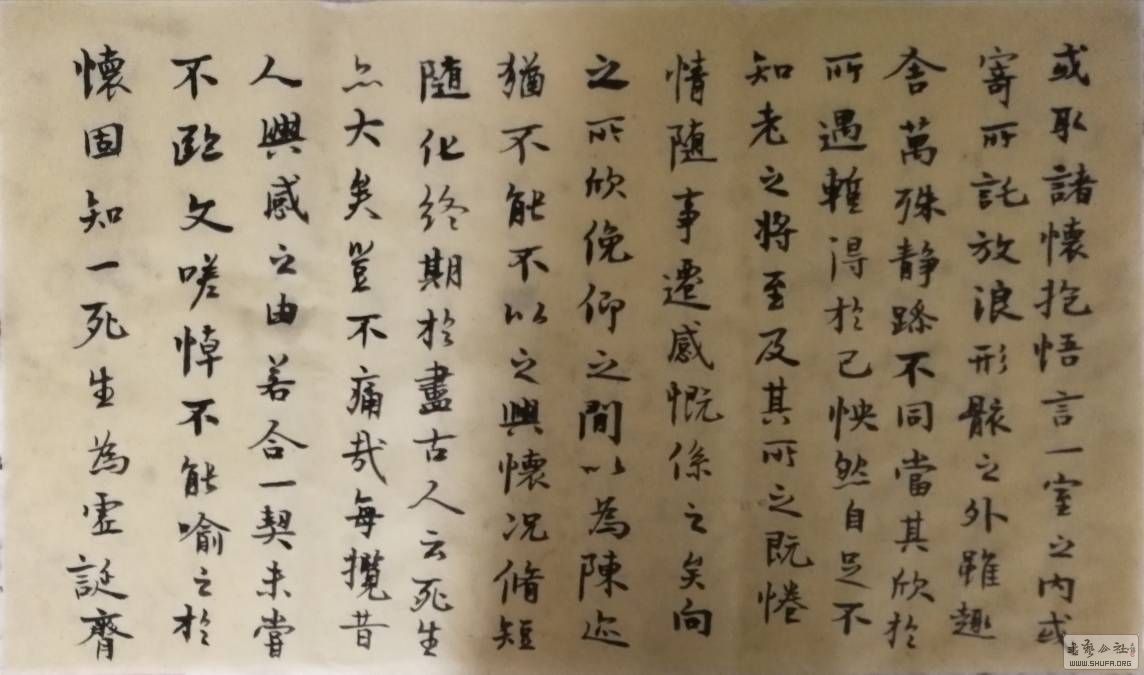 或取諸懷抱悟言一室之內或
寄所託放浪形骸之外雖趣
舍萬殊静躁不同當其欣於
所遇暫得於己怏然自足不
知老之將至及其所之既惓
情隨事遷感慨係之矣向
之所欣俛仰之間以為陳迹
猶不能不以之興懷况脩短
隨化終期於盡古人云死生
亦大矣豈不痛哉每攬昔
人興感之由若合一契未嘗
不臨文嗟悼不能喻之於
懷固知一死生為虛誕齊
書藝公社
WWW.SHUFA.ORG